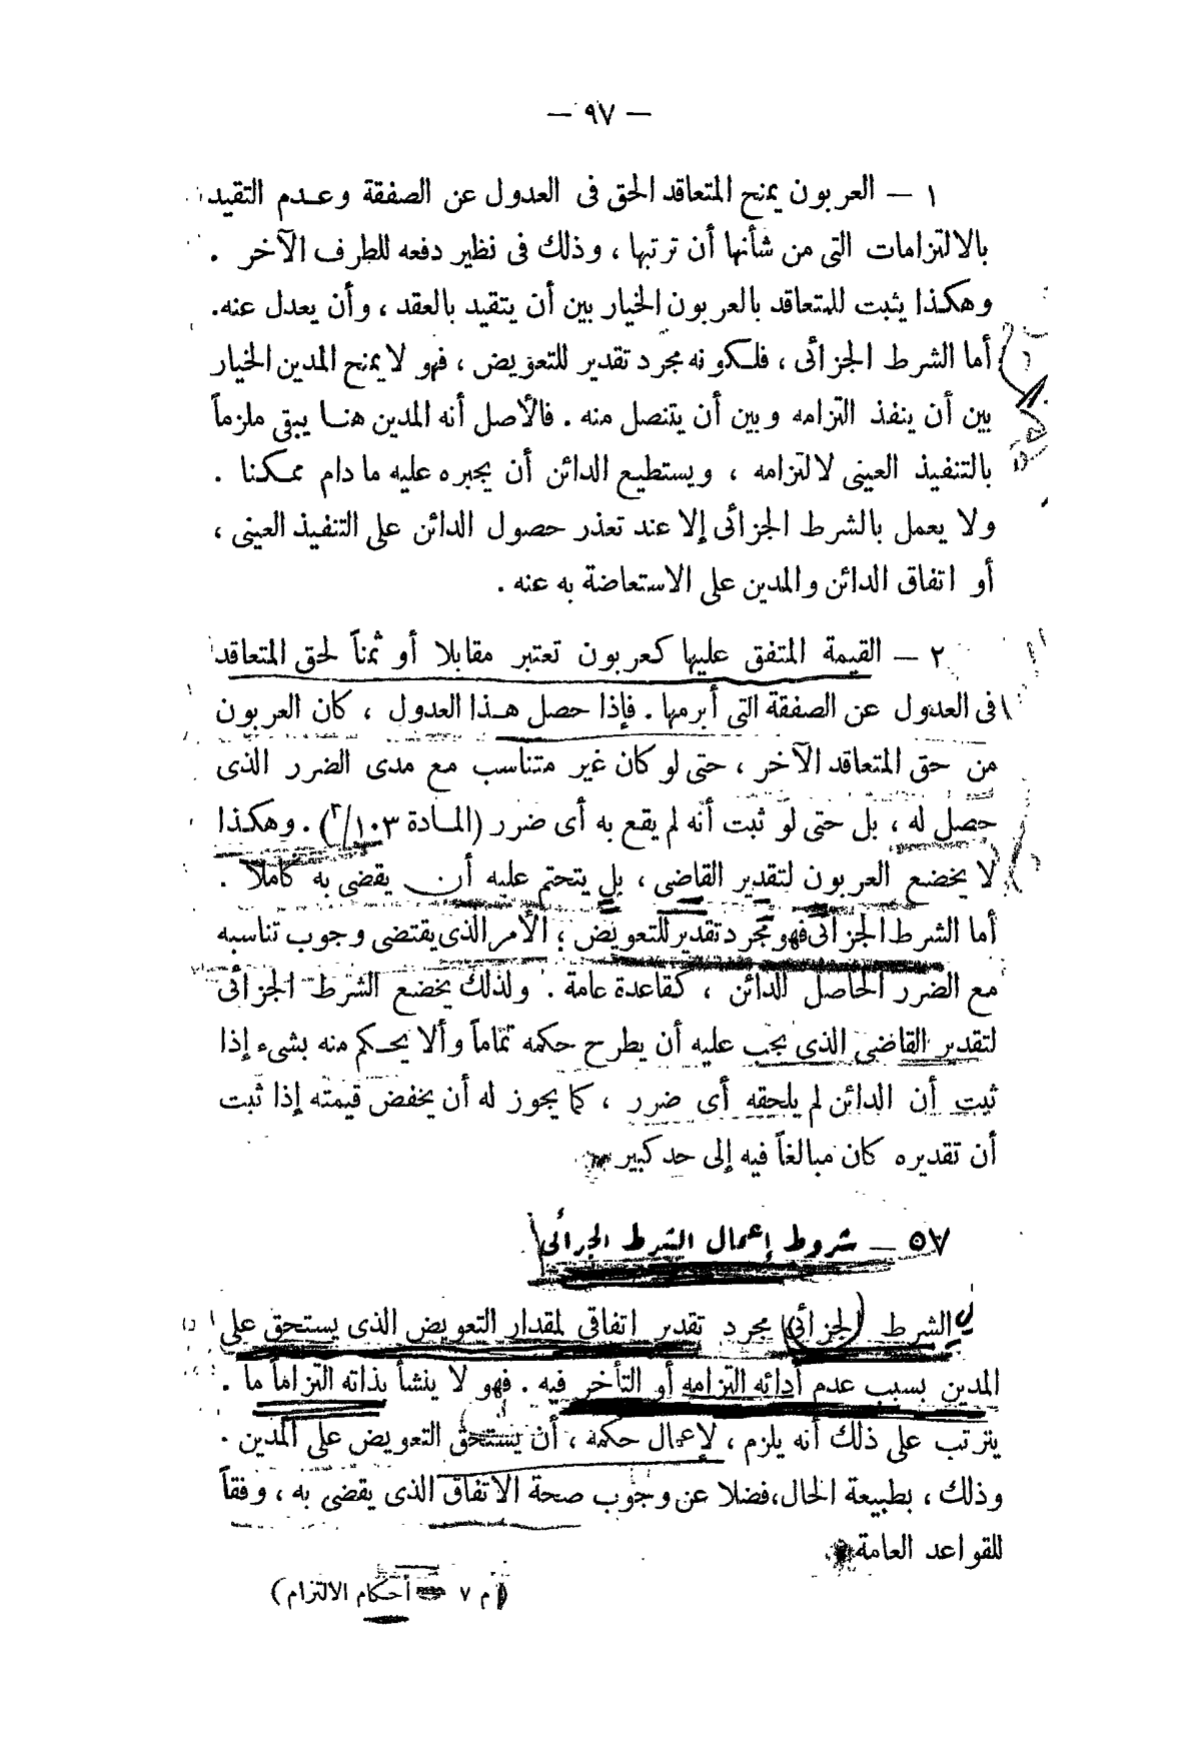 — ٩٧ —
١ — العربون يمنح المتعاقد الحق فى العدول عن الصفقة وعدم التقيد
بالالتزامات التى من شأنها أن ترتبها ، وذلك فى نظير دفعه للطرف الآخر .
وهكذا يثبت للمتعاقد بالعربون الخيار بين أن يتقيد بالعقد ، وأن يعدل عنه.
أما الشرط الجزائى ، فلكونه مجرد تقدير للتعويض ، فهو لا يمنح المدين الخيار
بين أن ينفذ التزامه وبين أن يتنصل منه . فالأصل أنه المدين هنا يبقى ملزماً
بالتنفيذ العينى لالتزامه ، ويستطيع الدائن أن يجبره عليه ما دام ممكنا .
ولا يعمل بالشرط الجزائى إلا عند تعذر حصول الدائن على التنفيذ العينى ،
أو اتفاق الدائن والمدين على الاستعاضة به عنه .
٢ — القيمة المتفق عليها كعربون تعتبر مقابلا أو ثمناً لحق المتعاقد
فى العدول عن الصفقة التى أبرمها . فإذا حصل هذا العدول ، كان العربون
من حق المتعاقد الآخر ، حتى لو كان غير متناسب مع مدى الضرر الذى
حصل له ، بل حتى لو ثبت أنه لم يقع به أى ضرر (المادة ٢/١٠٣) . وهكذا
لا يخضع العربون لتقدير القاضى ، بل يتحتم عليه أن يقضى به كاملا .
أما الشرط الجزائى فهو مجرد تقدير للتعويض ؛ الأمر الذى يقتضى وجوب تناسبه
مع الضرر الحاصل للدائن ، كقاعدة عامة . ولذلك يخضع الشرط الجزائى
لتقدير القاضى الذى يجب عليه أن يطرح حكمه تماماً وألا يحكم منه بشىء إذا
ثبت أن الدائن لم يلحقه أى ضرر ، كما يجوز له أن يخفض قيمته إذا ثبت
أن تقديره كان مبالغاً فيه إلى حد كبير
٥٧ — شروط إعمال الشرط الجزائى
الشرط الجزائى مجرد تقدير اتفاقى لمقدار التعويض الذى يستحق على
المدين بسبب عدم أدائه التزامه أو التأخر فيه . فهو لا ينشأ بذاته التزاماً ما .
يترتب على ذلك أنه يلزم ، لإعمال حكمه ، أن يستحق التعويض على المدين .
وذلك ، بطبيعة الحال، فضلا عن وجوب صحة الاتفاق الذى يقضى به ، وفقاً
للقواعد العامة
(م ٧ — أحكام الالتزام)